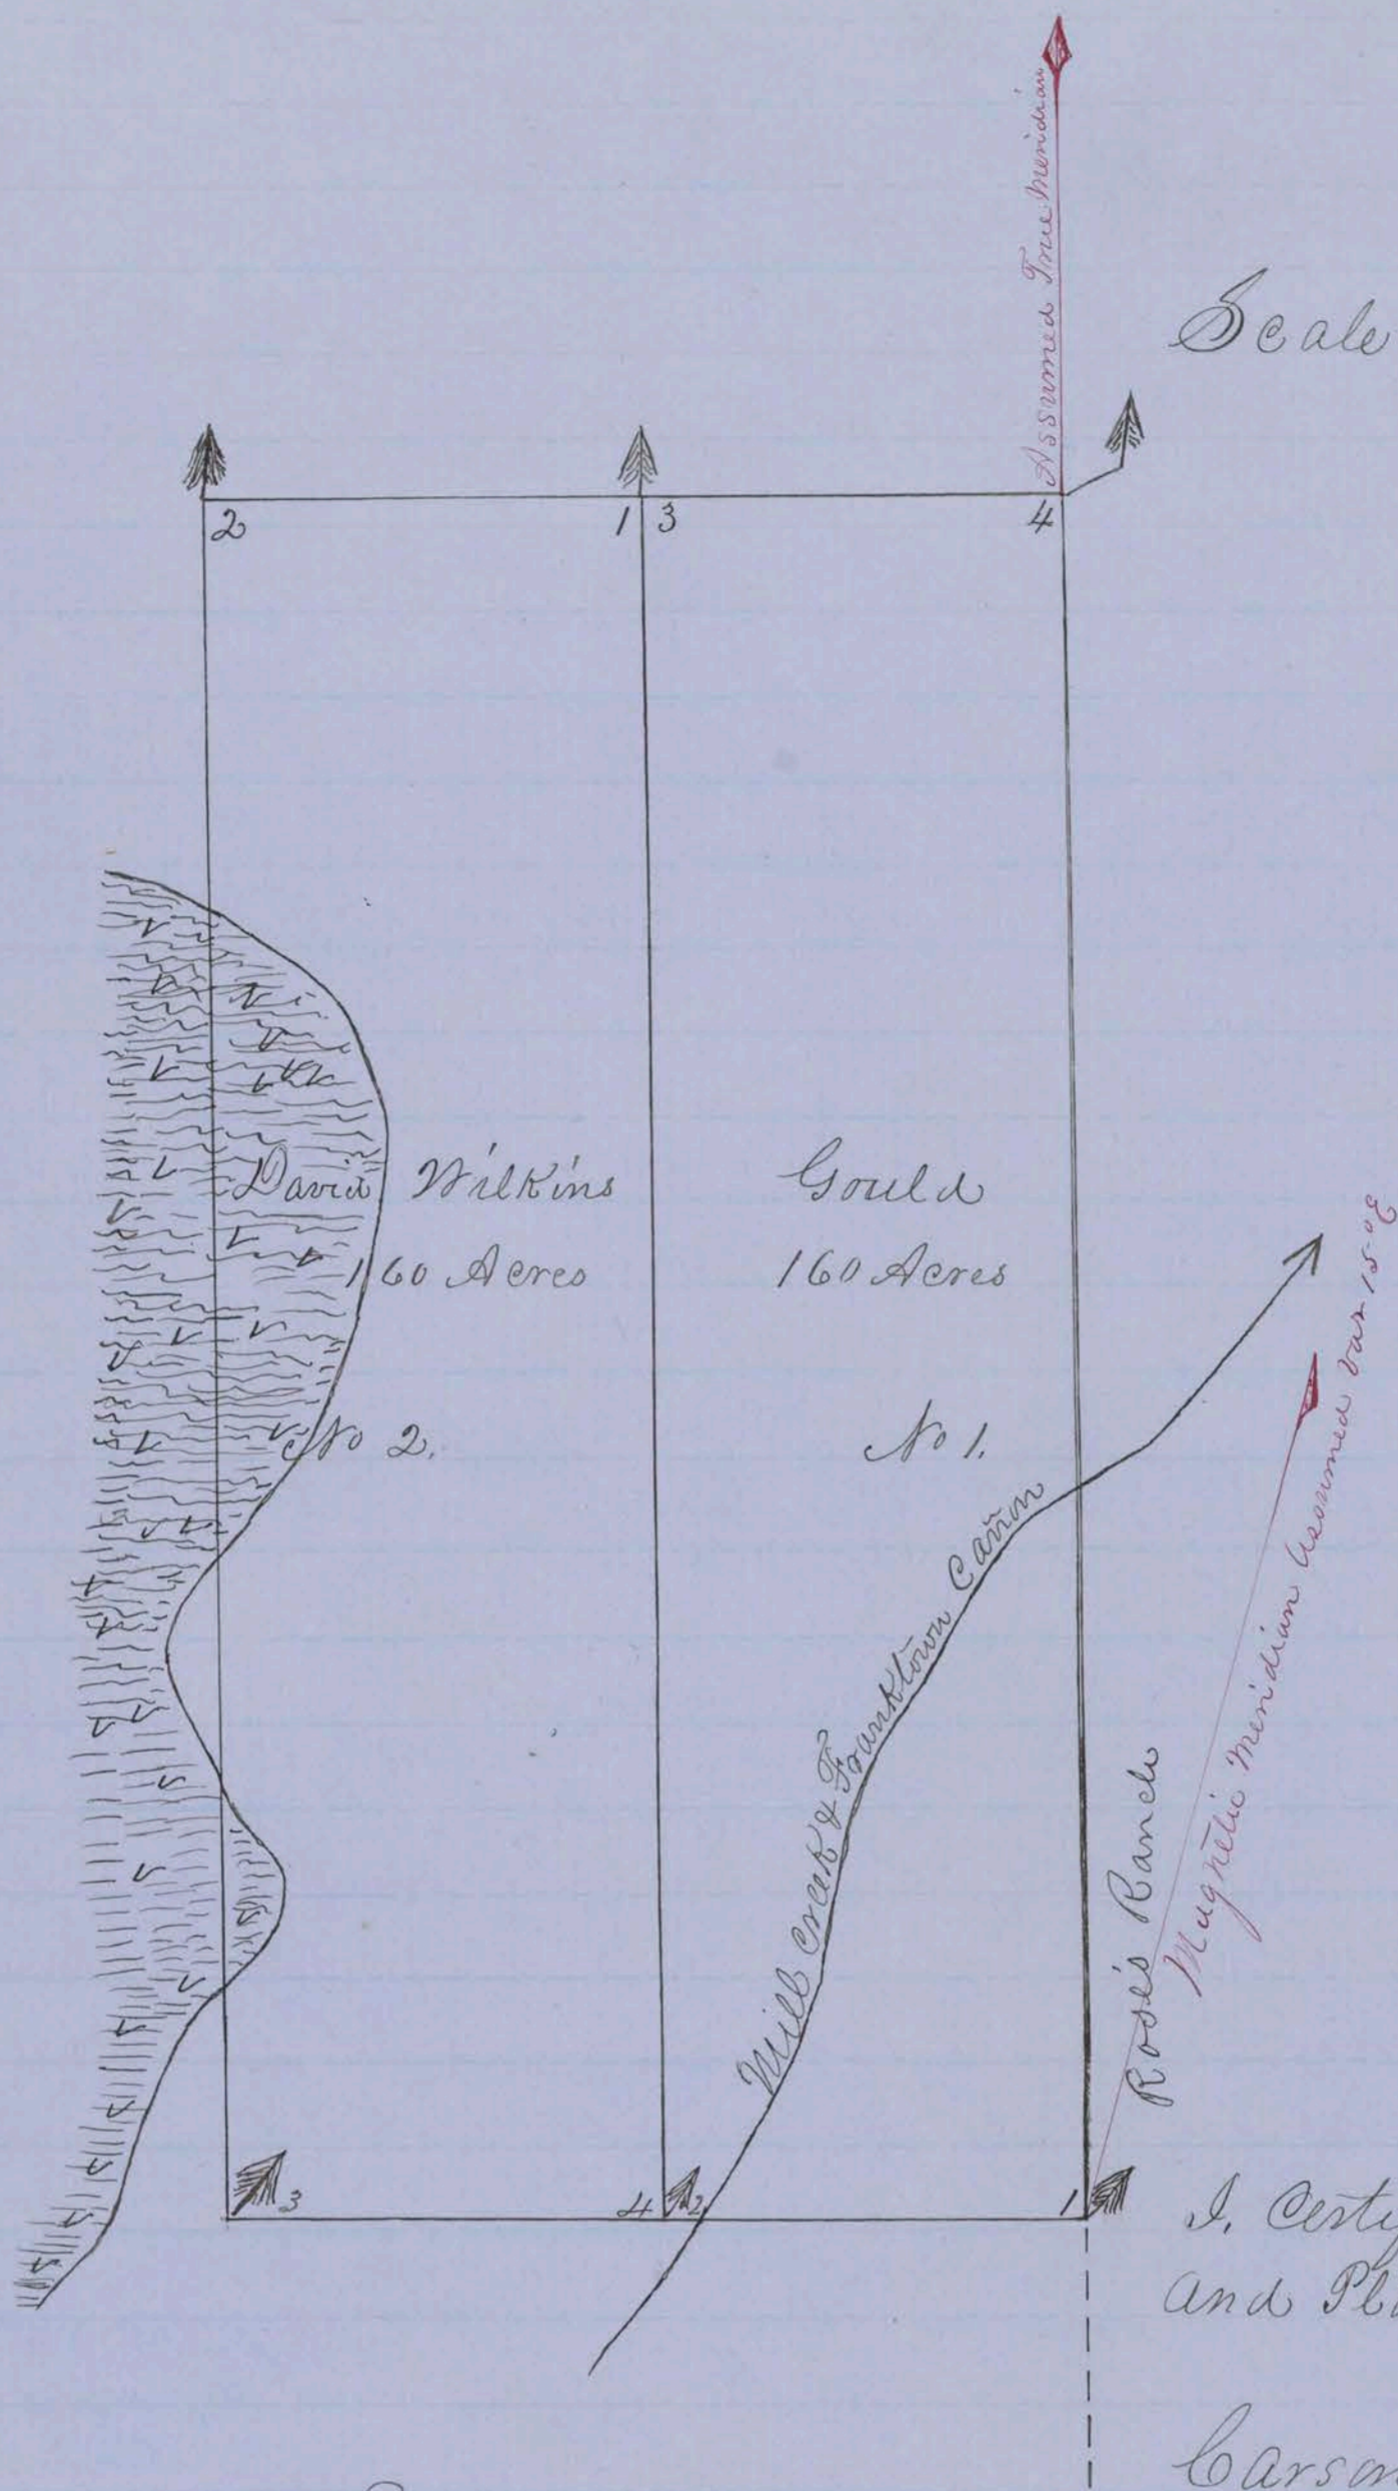 Assumed True Meridian
Scale
2
1
3
4
David Wilkins
160 Acres
No 2.
Gould
160 Acres
No 1.
Mill Creek & Franktown Cañon
Rose's Ranch
Magnetic Meridian Assumed Var 15° E
3
4
2
1
I, Certy
and Pl
Carson